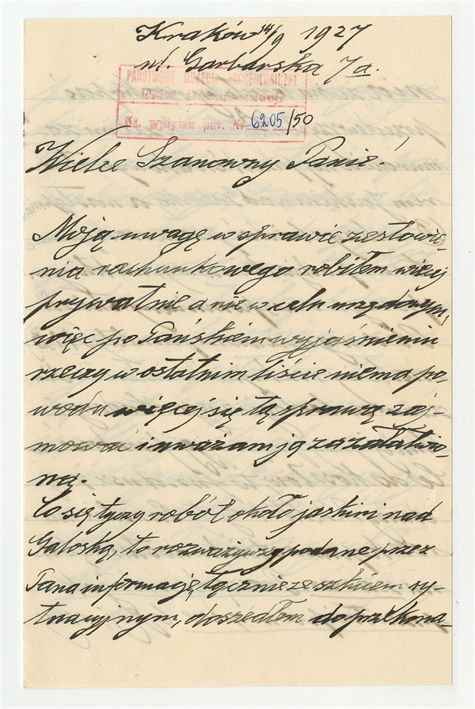 Kraków 14/9 1927
ul. Garbarska 7a.
PAŃSTWOWE MUZEUM ARCHEOLOGICZNE
Ks. wpływu poz. Nr 6205/50
Wielce Szanowny Panie!
Moją uwagę w sprawie zestawie-
nia rachunkowego robiłem więcej
prywatnie a nie w celu urzędowym,
więc po Pańskiem wyjaśnieniu
rzeczy w ostatnim liście niema po-
wodu więcej się tą sprawą zaj-
mować i uważam ją za załatwio-
ną.
Co się tyczy robót około jaskini nad
Galoską, to rozważywszy podane przez
Pana informacje łącznie ze szkicem sy-
tuacyjnym, doszedłem do przekona-